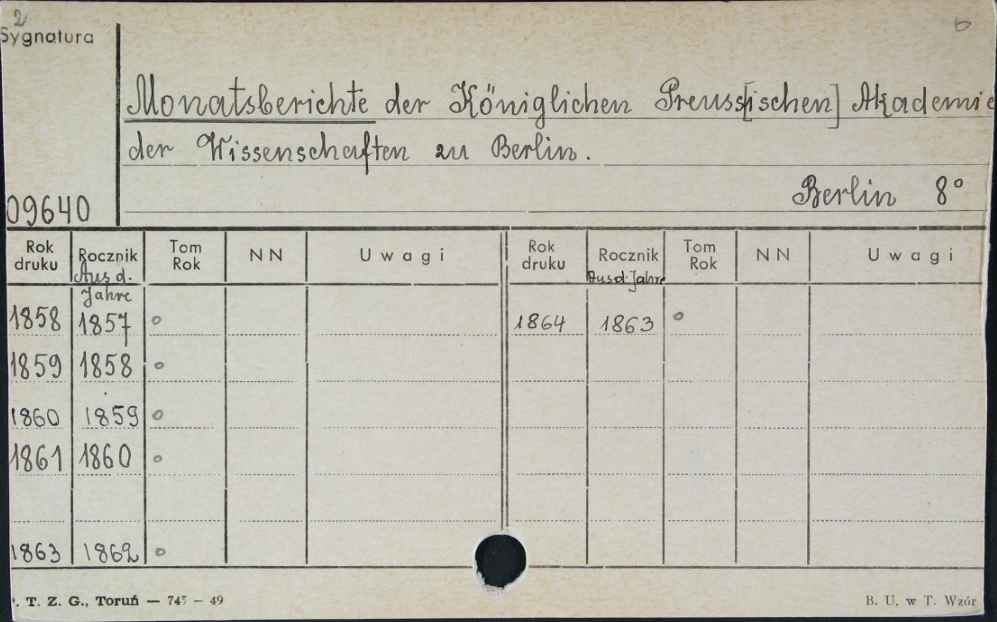 2
Sygnatura
Monatsberichte der Königlichen Preuss[ischen] Akademie
der Wissenschaften zu Berlin.
Berlin 8°
09640
Rok druku Rocznik Tom Rok NN Uwagi Rok druku Rocznik Tom Rok NN Uwagi
Aus d. Jahre Aus d. Jahre
1858 1857 o 1864 1863 o
1859 1858 o
1860 1859 o
1861 1860 o
1863 1862 o
. T. Z. G., Toruń — 745 - 49 B. U. w T. Wzór